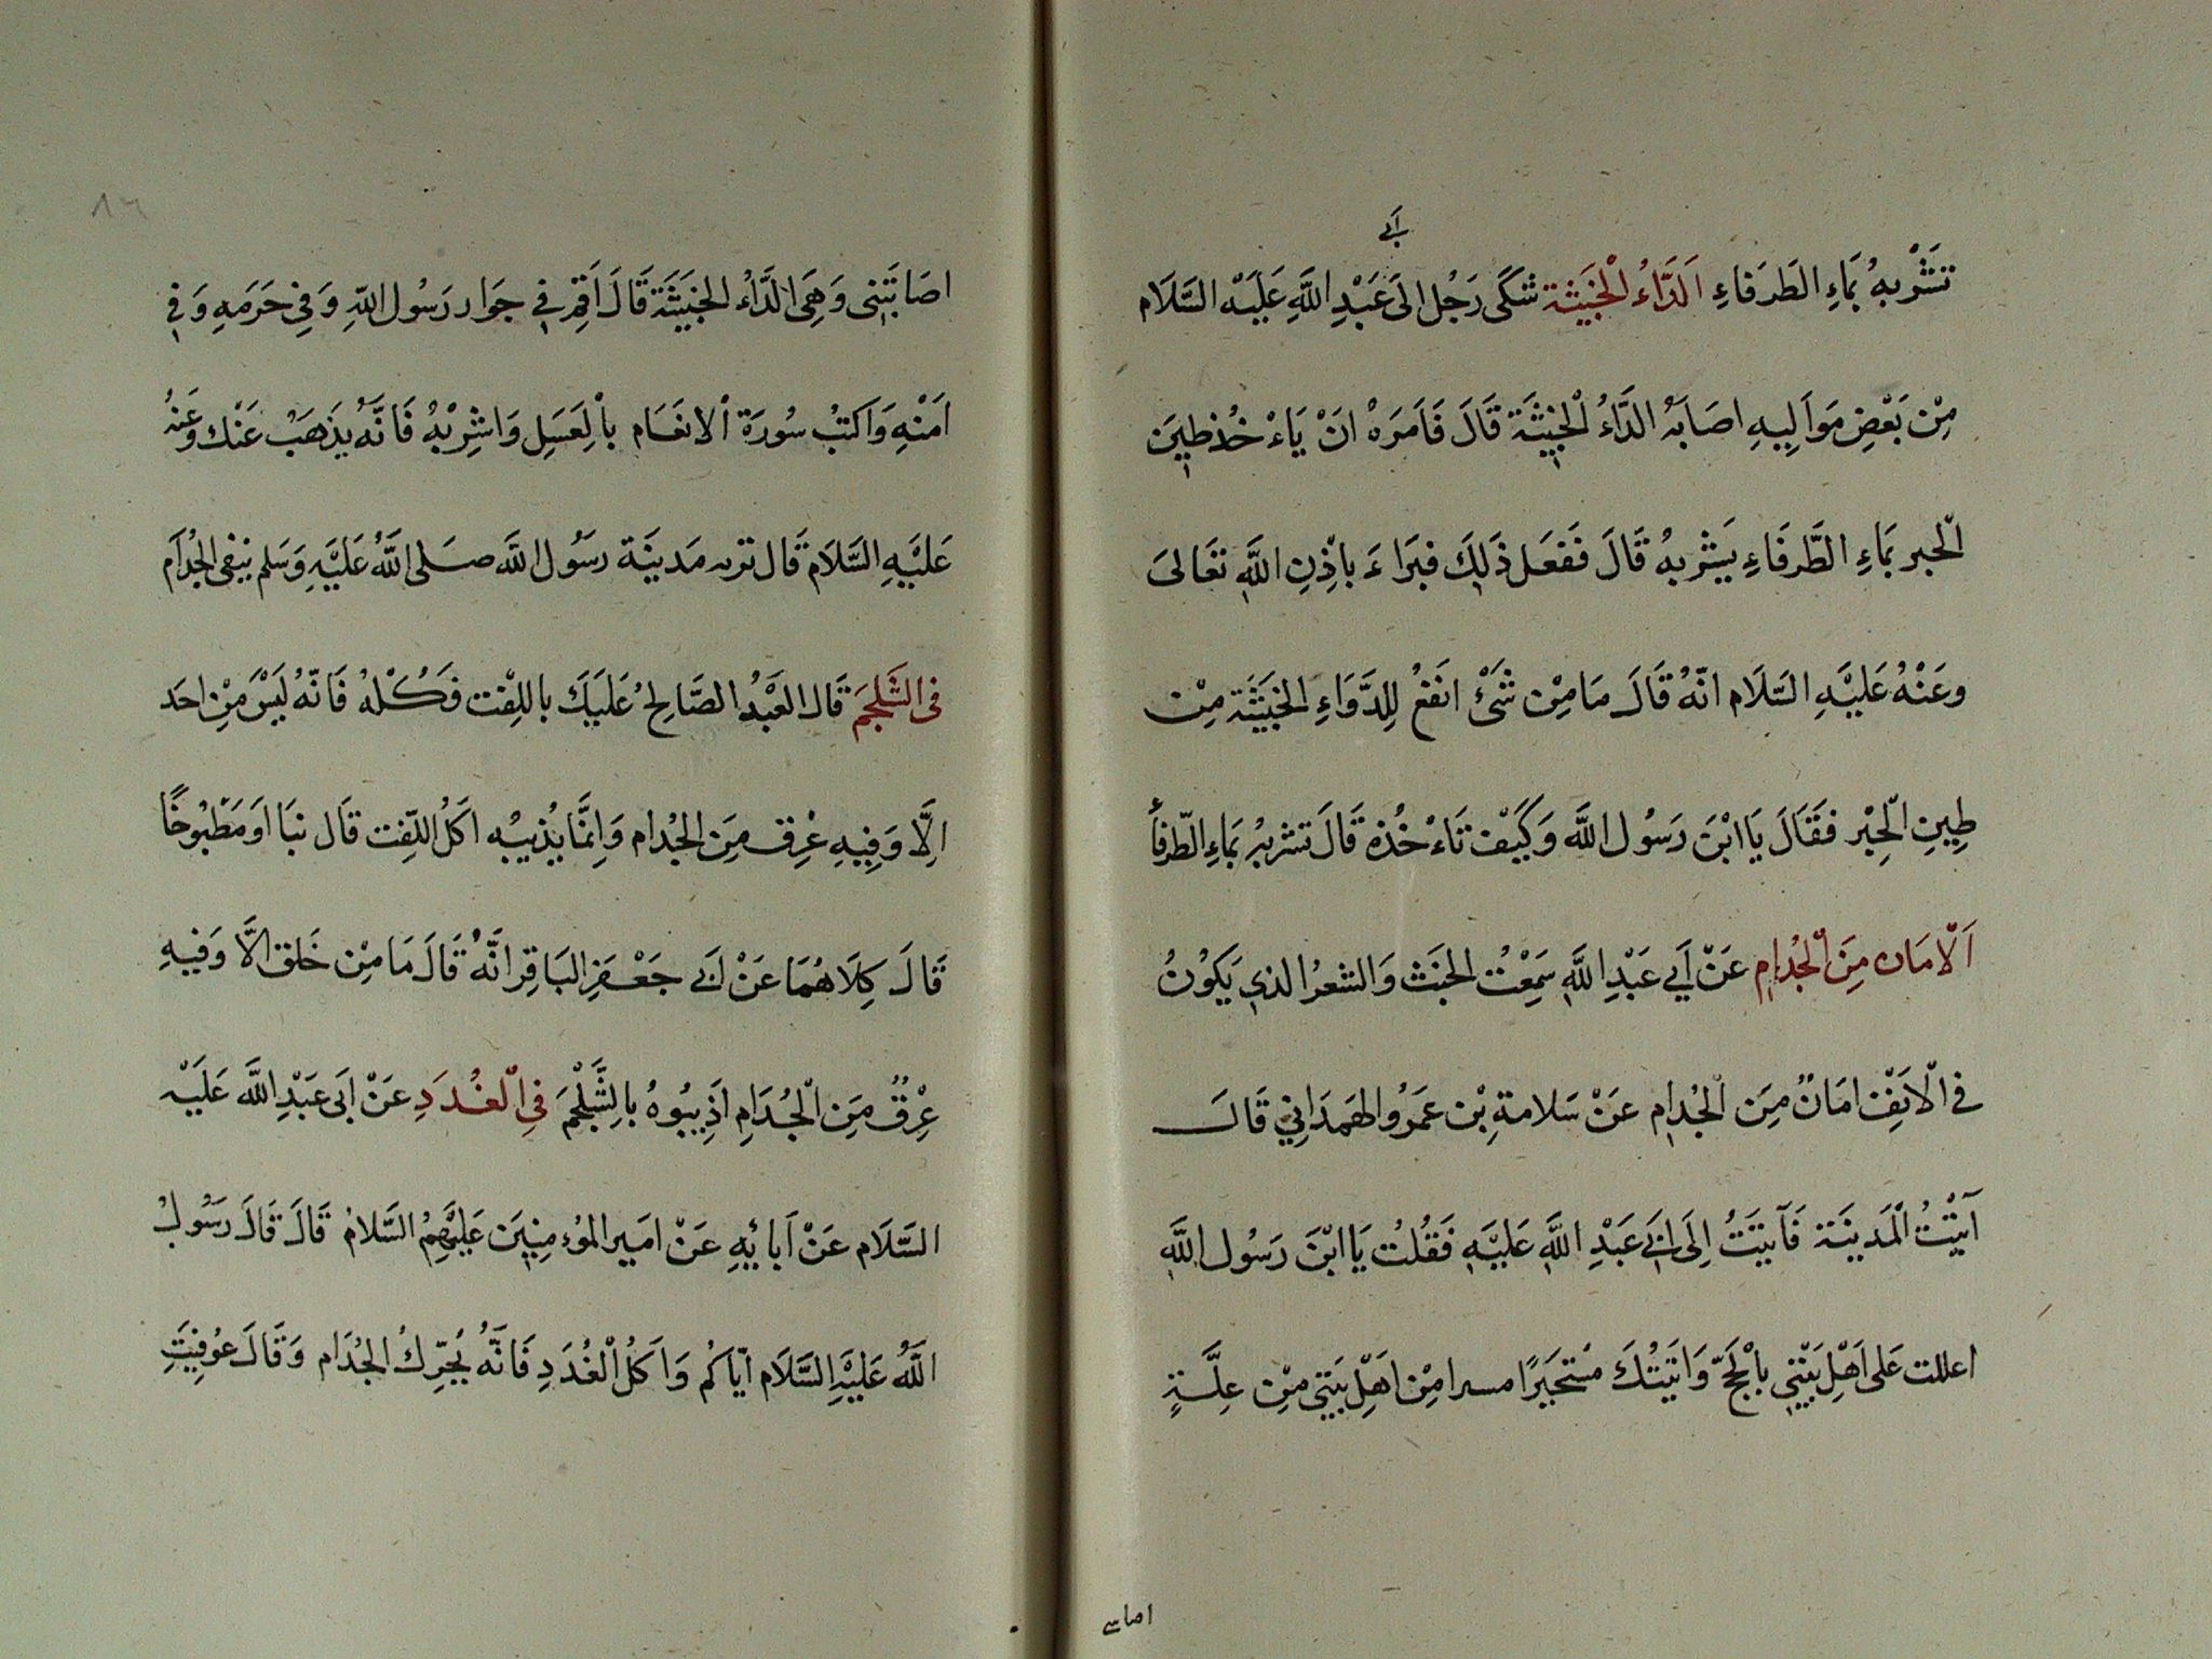 أبى
تَشْرَبهُ بمَاءِ الطَرَفاءِ اَلدَّاءُ الْخَبَيثة شكَى رَجُل الىَ عَبْدِ اللَّهِ عَلَيْه السَّلَام
مِنْ بَعْضِ مَوَالِيهِ اصَابَهُ الدَّاءُ الْخبِيثَة قَالَ فَاَمَرَهُ انَْ يَاءْ خُذ طِيَن
الْحير بمَاءِ الطَّرفَاءِ يَشْربهُ قَالَ فَفعَل ذَلِكَ فبَراءَ باذِنِ اللَّهِ تعَالىَ
وعَنْهُ عَليَْهِ السَّلَام انّهُ قَالَ مَا مِنْ شَىْٔ انَفعُ لِلدَّوَاءِ الخَبَيثَة مِن
طِينِ الْحِيْر فقَالَ يَا ابْنَ رَسُول اللَّه وَكَيْفَ تَاءْخُذهُ قَالَ تشربهُ بمَاءِ الطّرفأ
اَلْامَان مِنَ الْجُدامِ عَنْ اَبي عَبْدِ اللَّهِ سَمِعْتُ الخبَث وَالشعرُ الذي يَكوُنُ
في الْاَنفِ امَانٌ مِنَ الْجُدام عَنْ سَلامةِ بْن عَمَرُو الهَمدَانِي قَالَ
اَتيْتُ الْمَدينَة فَاَتيَتُ اِلَى اَبَي عَبْدِ اللَّهِ عَليَْهِ فَقُلتُ يَا ابْنَ رَسُول اللَّهِ
اعللت عَلى اَهْلِ بَيْتيِ باْلْحَجّ وَاتَيْتُكَ مَستجَيرًا مسرا مِنْ اهَلْ بَيَتي مْنِ عِلَّةٍ
اصاب
اصَابتَنِى وَهِىَ الدَّاءُ الخبَيثَة قَالَ اَقِم في جَوَار رَسُول اللّهِ وَفِي حَرَمِهِ وَفي
اَمنْهِ وَاَكتبُْ سُورَة اْلانعَام باْلِعَسَلِ وَاشرِبْهُ فَانَّهُ يَذهَبُ عَنْك وعَنْهُ
عَليَْهِ السَّلَام قَال تربه مَدينَة رسَوُل اللَّه صلى اللَّهُ عَليَْهِ وَسَلم ينفى الجُدْاَم
فى الشَّلجَم قَال العَبْدُ الصَّالِحُ عَلَيَكَ باللِفْت فكُلْهُ فَانّهُ لَيَسْ مِنْ احَد
اِلَّا وَفِيهِ عْرِق مِنَ الجْدام وَاِنمَّا يُذيبُه اكَلْ اللّفت قَال نيَا اَو مَطبُوخًا
قَالَ كِلاَهُمَا عَنْ اَبَي جَعْفَر البَاقِر انَّهُ قَالَ مَا مِنْ خَلق الَّا وَفيهِ
عِرْقٌ مِنَ الْجُدَامِ اَذيِبُوهُ بالِشَّلْجَم فيِ الْغُدَدِ عَنْ اَبى عَبْدِ اللَّه عَلَيْه
السَّلَام عَنْ اَبائِهِ عَنْ امَير المؤمنِيَن عَليَهْمُ السَّلام قَالَ قَالَ رَسُولُ
اللَّهُ عَليَْهِ السَّلَام ايّاَكُم وَاَكلُ الْغُدَدِ فَانَّهُ يُحَرِّكُ الجُدَام وَقَالَ عوُفِيَتِ